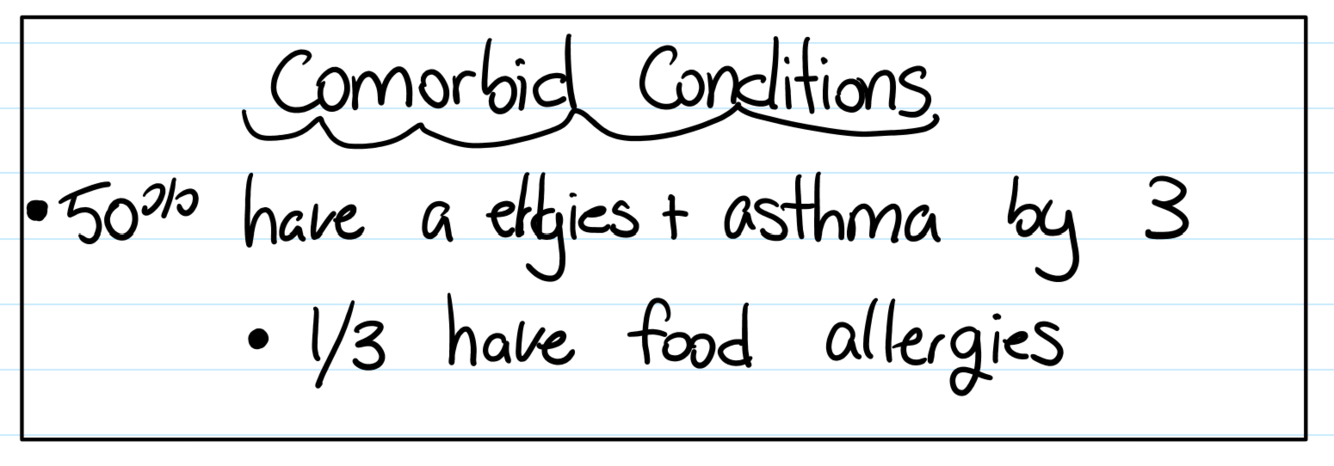 Comorbid Conditions
• 50% have a and asthma by 3
• 1/3 have food allergies